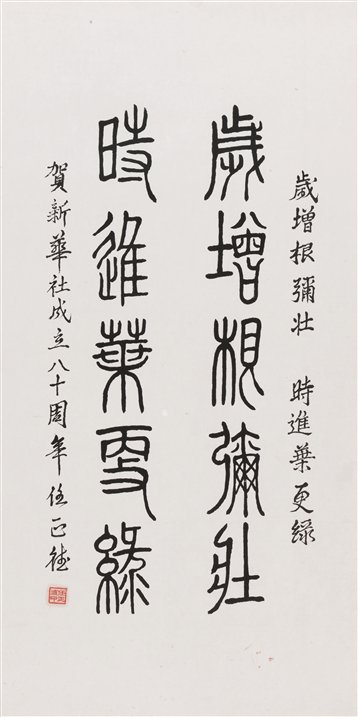 歲增根彌壯　時進葉更綠
歲增根彌壯
時進葉更綠
賀新華社成立八十周年任正德